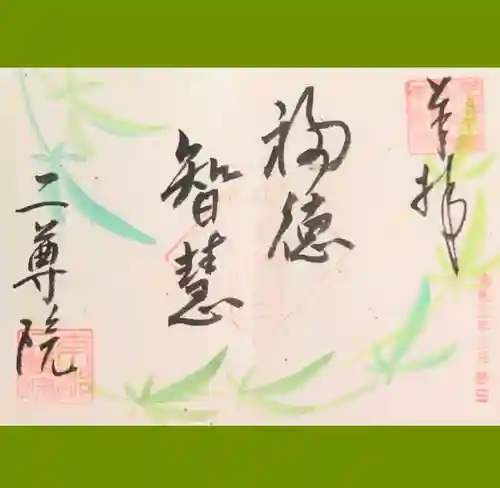 奉拝
福徳
智慧
二尊院